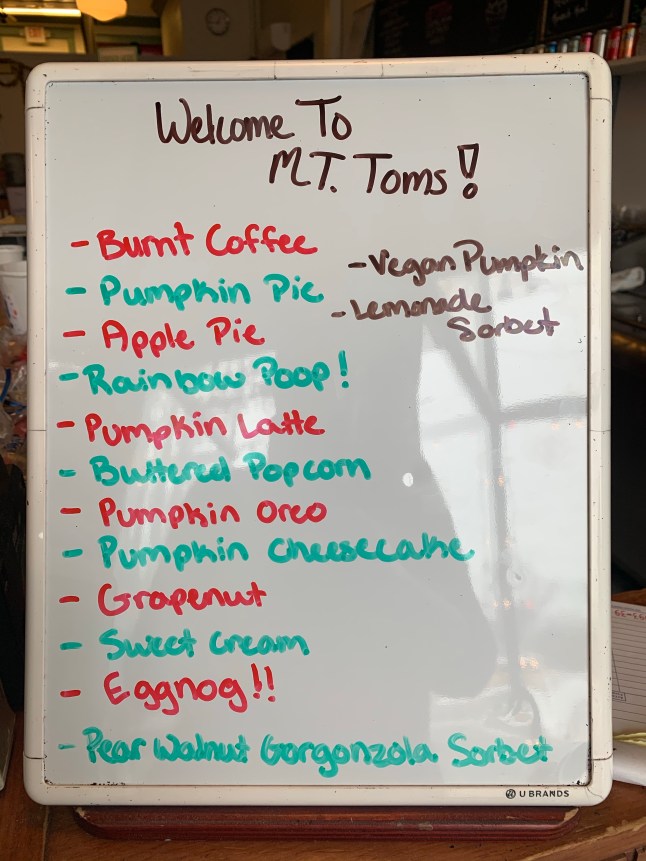 Welcome To
MT. Toms!
- Burnt Coffee
- Pumpkin Pie
- Apple Pie
- Rainbow Poop!
- Pumpkin Latte
- Buttered Popcorn
- Pumpkin Oreo
- Pumpkin Cheesecake
- Grapenut
- Sweet Cream
- Eggnog!!
- Pear Walnut Gorgonzola Sorbet
- Vegan Pumpkin
- Lemonade
Sorbet
U BRANDS
EXIT